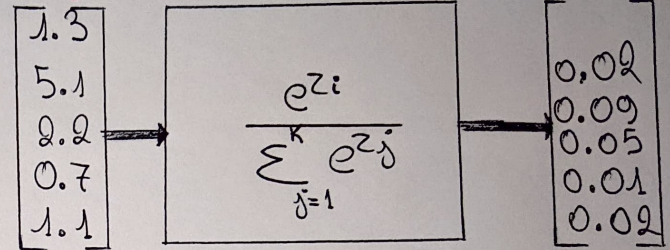 1.3
5.1
2.2
0.7
1.1
e^{zi}
Σ^{K}_{j=1} e^{zj}
0,02
0.09
0.05
0.01
0.02